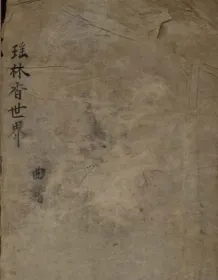 瑶林香世界